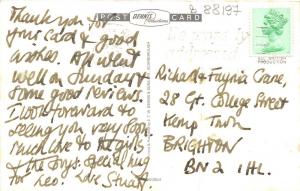 B 88197
POST CARD
DENNIS
Productions
Thank you for
your card & good
wishes. All went
well on Sunday &
some good reviews.
I look forward to
seeing you very soon.
Much love to the girls
& the boys. Special hug
for Leo. Love Stuart.
ALL BRITISH
PRODUCTION
Richard & Faynia Crane,
28 Gt. College Street
Kemp Town
BRIGHTON
BN2 1HL.